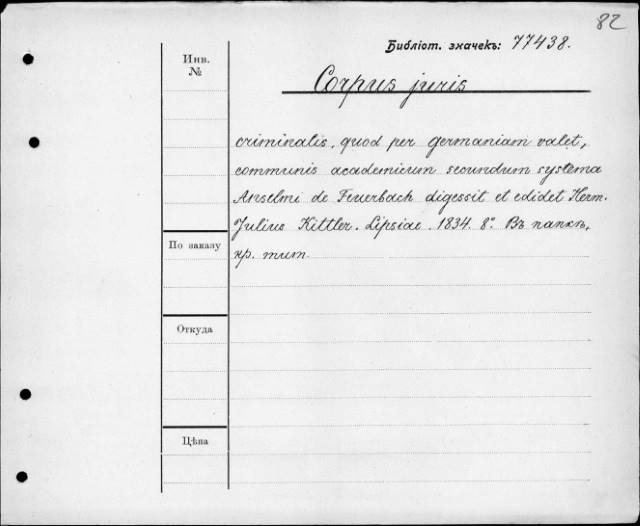 82
Библіот. значекъ: 77438.
Инв.
№
Corpus juris
criminalis, quod per germaniam valet,
communis academicum secundum systema
Anselmi de Feuerbach digessit et edidet Herm.
Julius Kittler. Lipsiae. 1834. 8°. Въ папкѣ,
кр. тит.
По заказу
Откуда
Цѣна